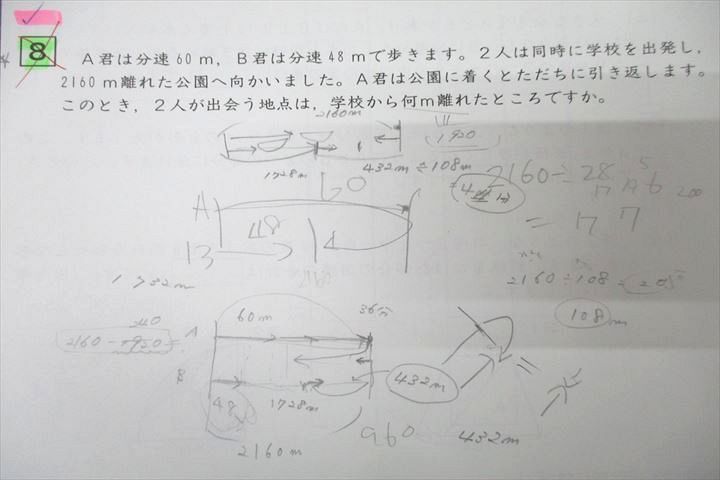 8 A君は分速60m，B君は分速48mで歩きます。2人は同時に学校を出発し，
2160m離れた公園へ向かいました。A君は公園に着くとただちに引き返します。
このとき，2人が出会う地点は，学校から何m離れたところですか。
2160m
1920
1728m
432m÷108m
2160÷28
60
A
48
B
= 17 7
1732m
2160÷108=20分
108m
60m
36分
2160-1920=
A
B
432m
48
1728m
2160m
960
432m